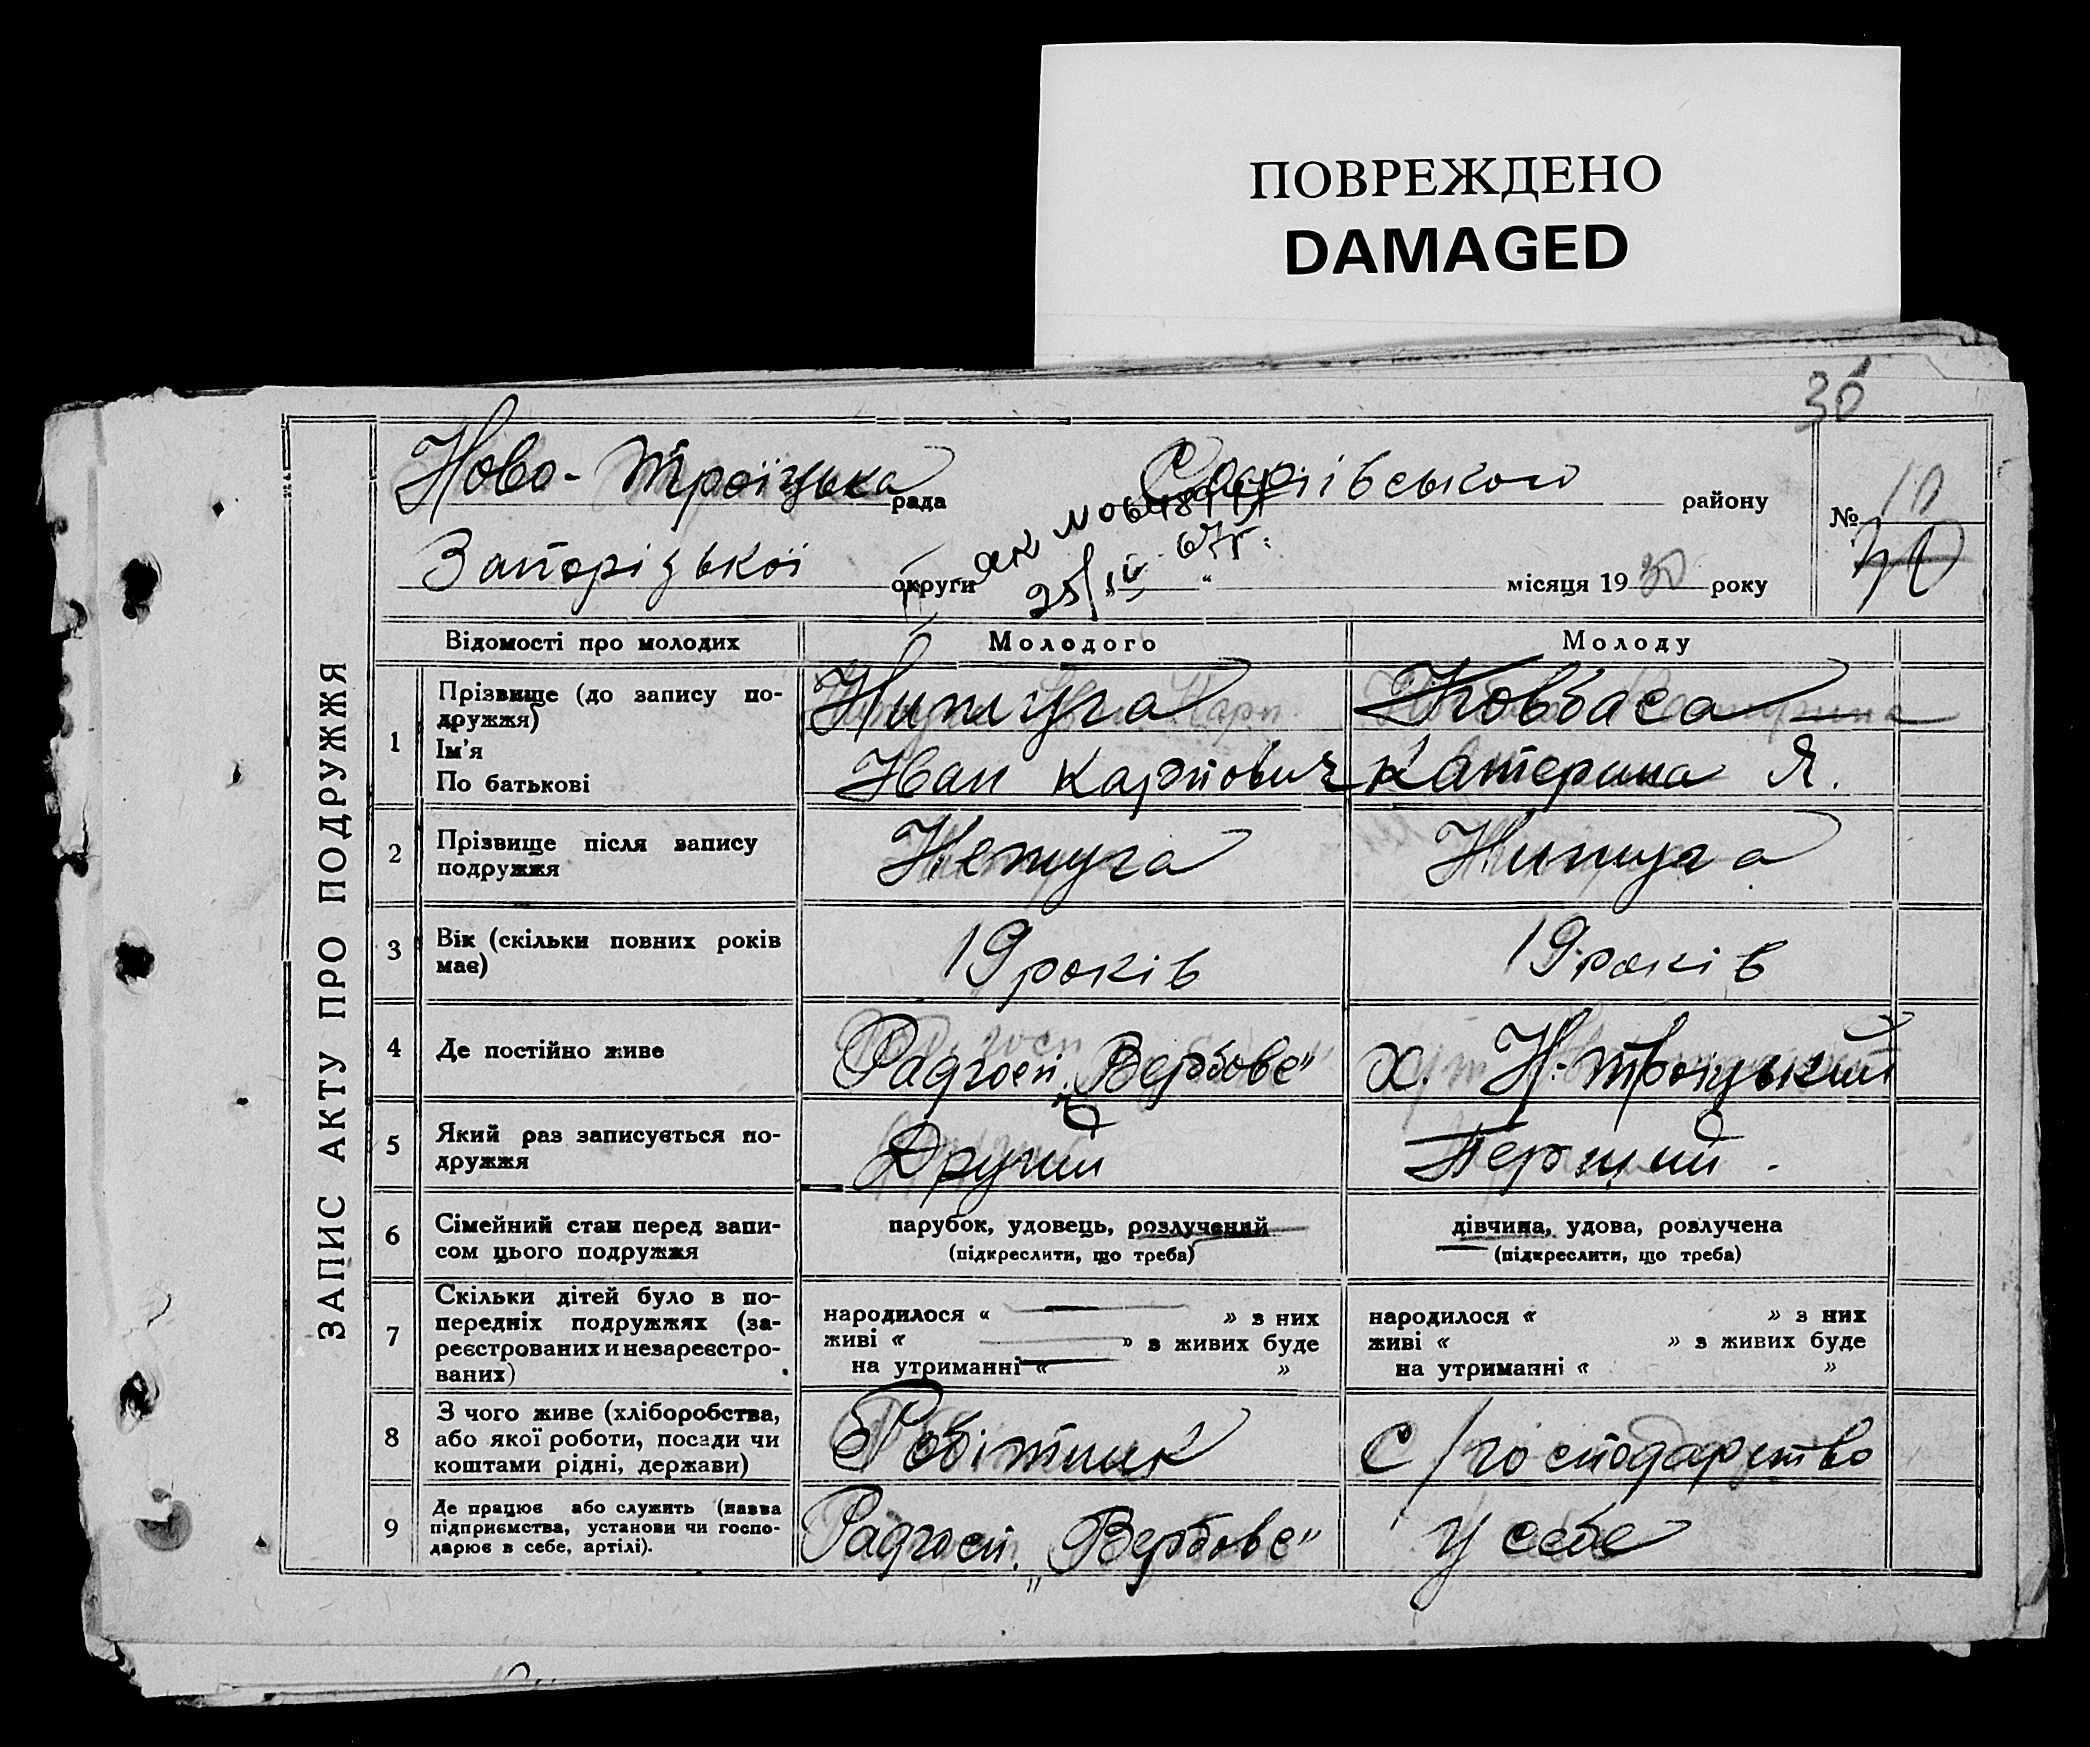 ПОВРЕЖДЕНО
DAMAGED
30
ЗАПИС АКТУ ПРО ПОДРУЖЖЯ
Ново-Троїцька рада Софіівського району
№ 10
30
Запоріцької округи " " місяця 1930 року
25/IV 67г.
Відомості про молодих Молодого Молоду
1 Прізвище (до запису по-
дружжя)
Ім'я
По батькові
Нипиуга Ковбаса
Іван Карпович Катерина Я.
2 Прізвище після запису
подружжя
Непуга Нипуга
3 Вік (скільки повних років
має)
19 років 19 років
4 Де постійно живе Радгосп. „Вербове" х. Н-Троіцький
5 Який раз записується по-
дружжя
Другий Перший.
6 Сімейний стан перед запи-
сом цього подружжя
парубок, удовець, розлучений
(підкреслити, що треба)
дівчина, удова, розлучена
(підкреслити, що треба)
7 Скільки дітей було в по-
передніх подружжях (за-
реєстрованих и незареєстро-
ваних)
народилося « » з них
живі « » з живих буде
на утриманні « »
народилося « » з них
живі « » з живих буде
на утриманні « »
8 З чого живе (хліборобства,
або якої роботи, посади чи
коштами рідні, держави)
Робітник С/господарство
9 Де працює або служить (назва
підприємства, установи чи госпо-
дарює в себе, артілі).
Радгосп. „Вербове" у себе